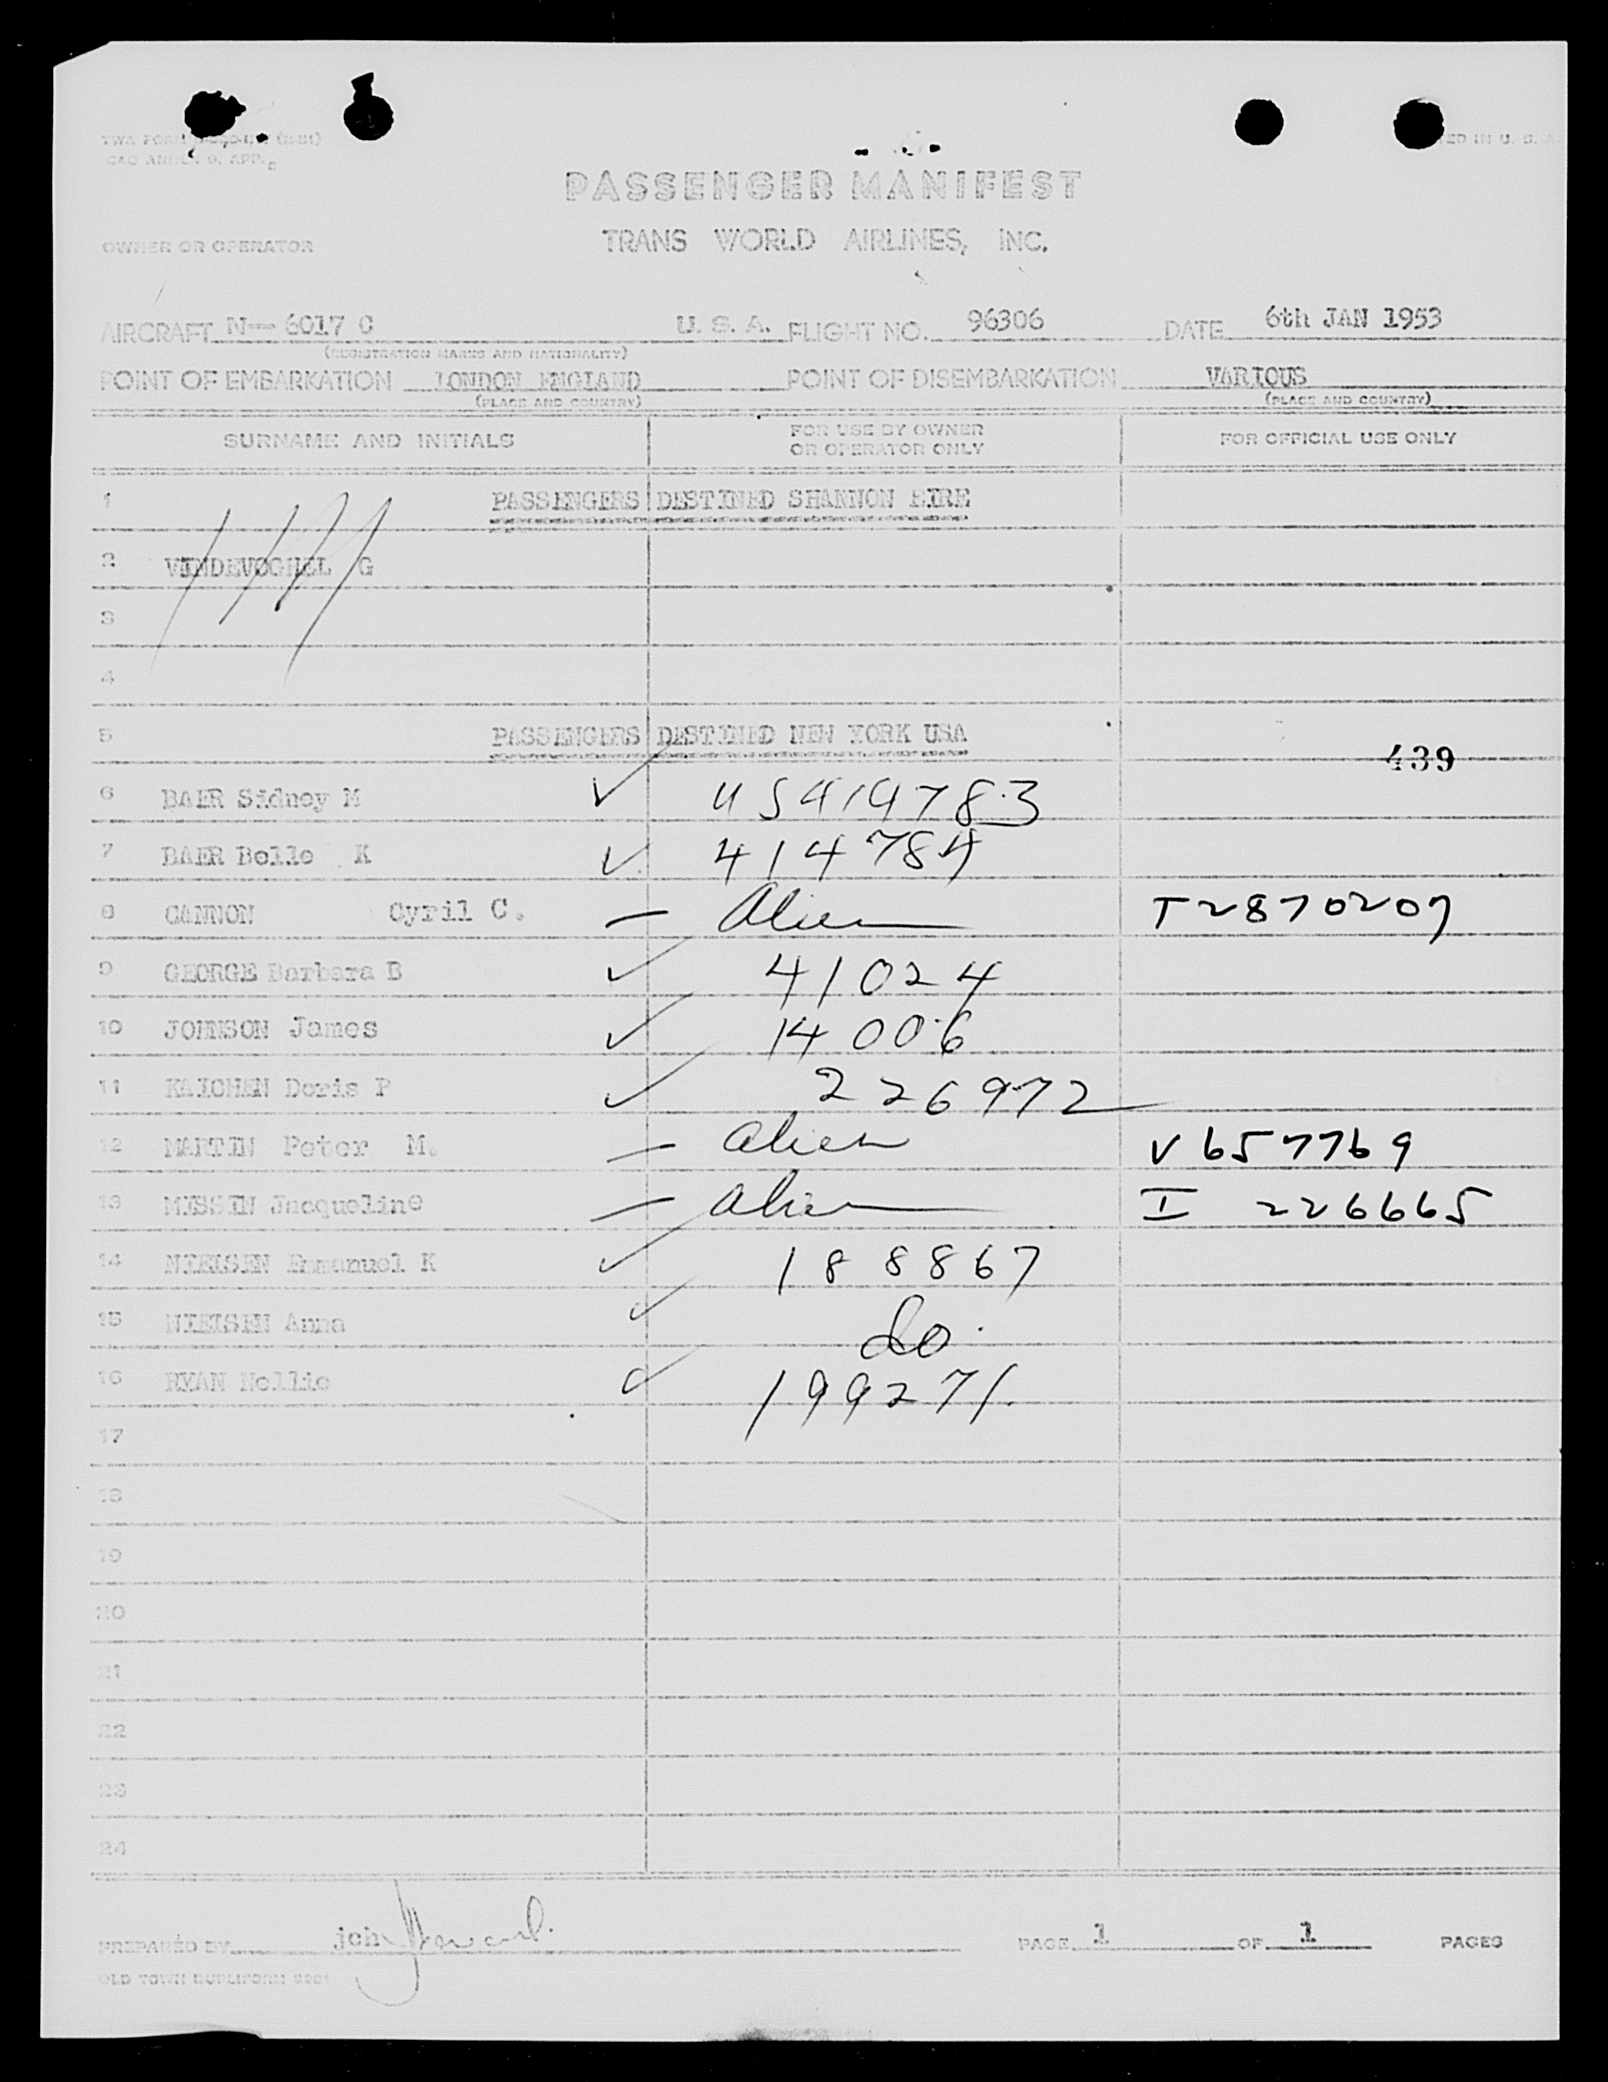 PASSENGER MANIFEST
OWNER OR OPERATOR TRANS WORLD AIRLINES, INC.
AIRCRAFT N— 6017 C U. S. A. FLIGHT NO. 96306 DATE 6th JAN 1953
(REGISTRATION MARKS AND NATIONALITY)
POINT OF EMBARKATION LONDON ENGLAND POINT OF DISEMBARKATION VARIOUS
(PLACE AND COUNTRY) (PLACE AND COUNTRY)
SURNAME AND INITIALS FOR USE BY OWNER OR OPERATOR ONLY FOR OFFICIAL USE ONLY
1 PASSENGERS DESTINED SHANNON EIRE
2 G
3
4
5 PASSENGERS DESTINED NEW YORK USA 439
6 BAER Sidney M
7 BAER Belle K 414784
8 CANNON Cyril C. Alien T2870207
9 GEORGE Barbara B 41024
10 JOHNSON James 14006
11 Doris P 226972
12 MARTIN Peter M. alien V657769
13 Jacqueline alien I 226665
14 NIELSEN Emmanuel K 188867
15 NIELSEN Anna do.
16 RYAN Nellie 199271.
17
18
19
20
21
22
23
24
PREPARED BY jch PAGE 1 OF 1 PAGES